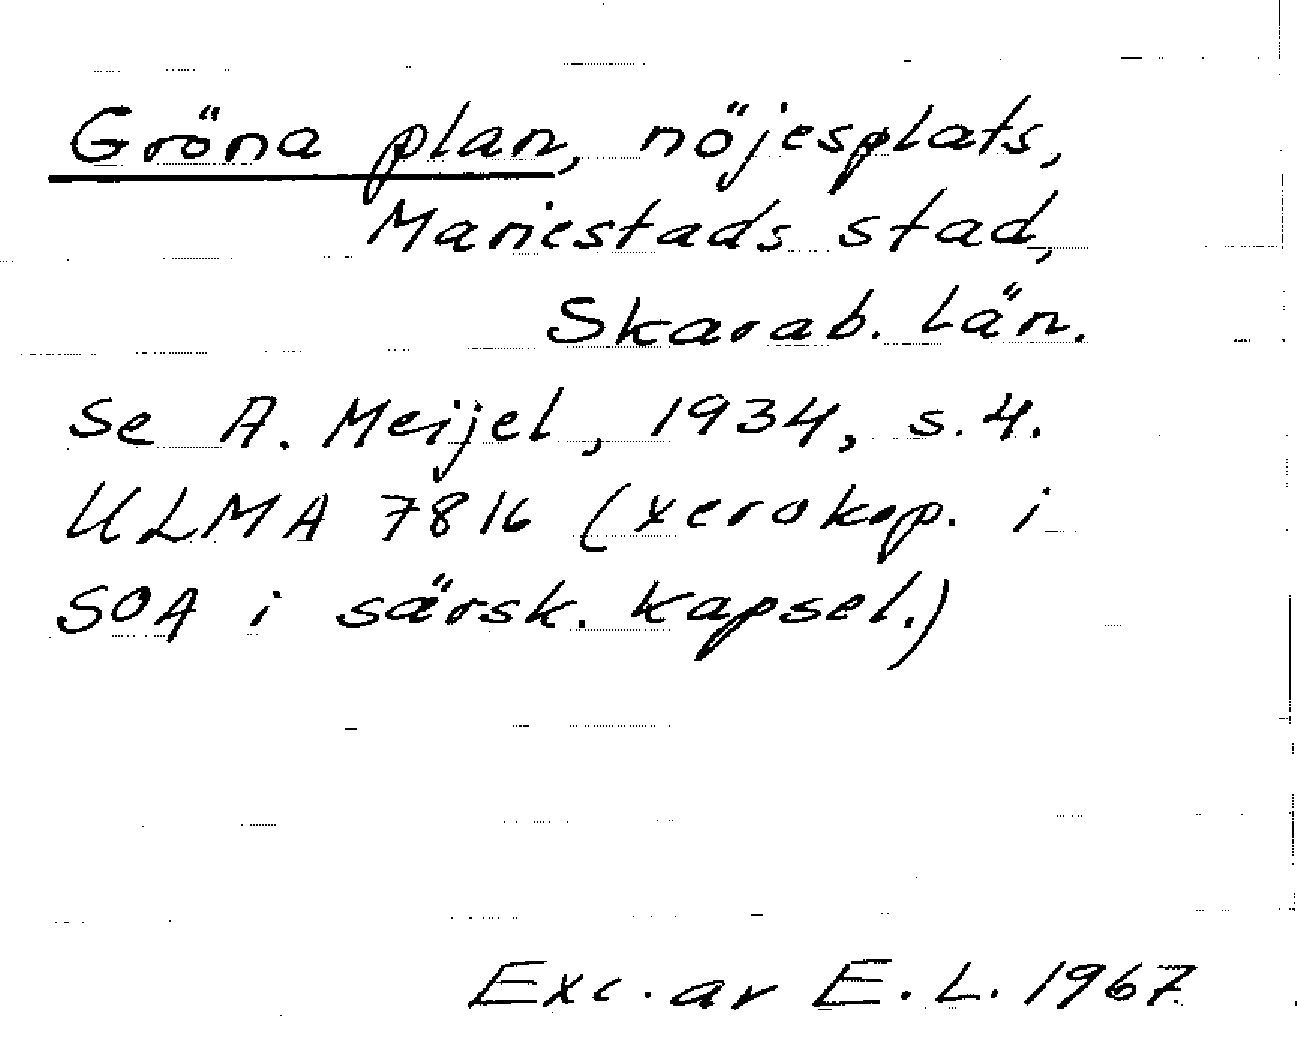 Gröna plan, nöjesplats,
Mariestads stad,
Skarab. Län.
Se A. Meijel, 1934, s. 4.
ULMA 7816 (xerokop. i
SOA i särsk. kapsel.)
Exc. av E. L. 1967